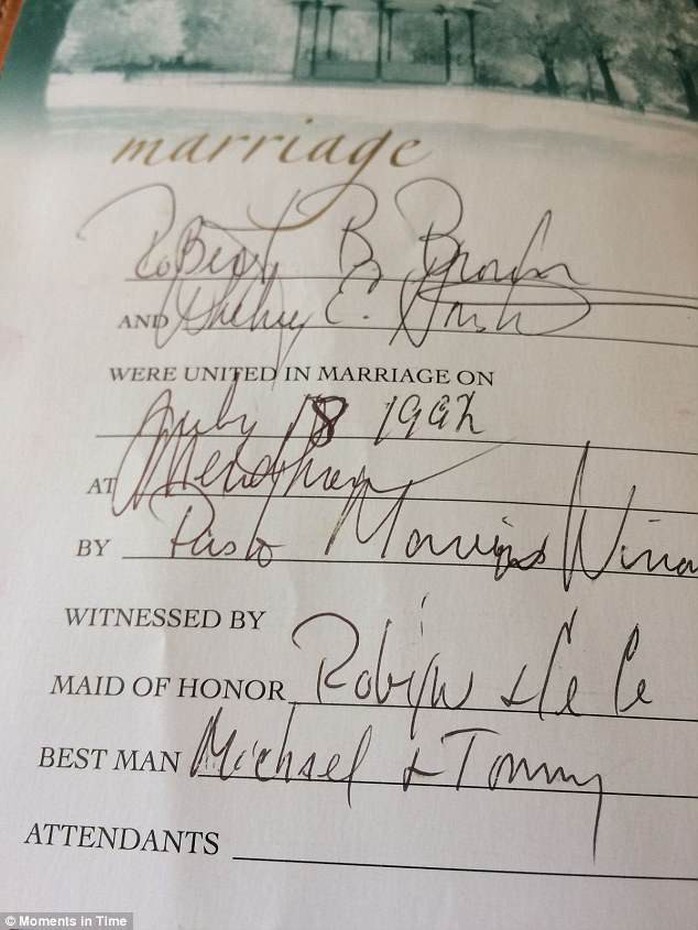 marriage
Robert B. Brown
AND Shelley E.
WERE UNITED IN MARRIAGE ON
July 18 1992
AT Mendham
BY Pastor Marvins Winan
WITNESSED BY
MAID OF HONOR Robyn + Ce Ce
BEST MAN Michael + Tommy
ATTENDANTS
© Moments in Time